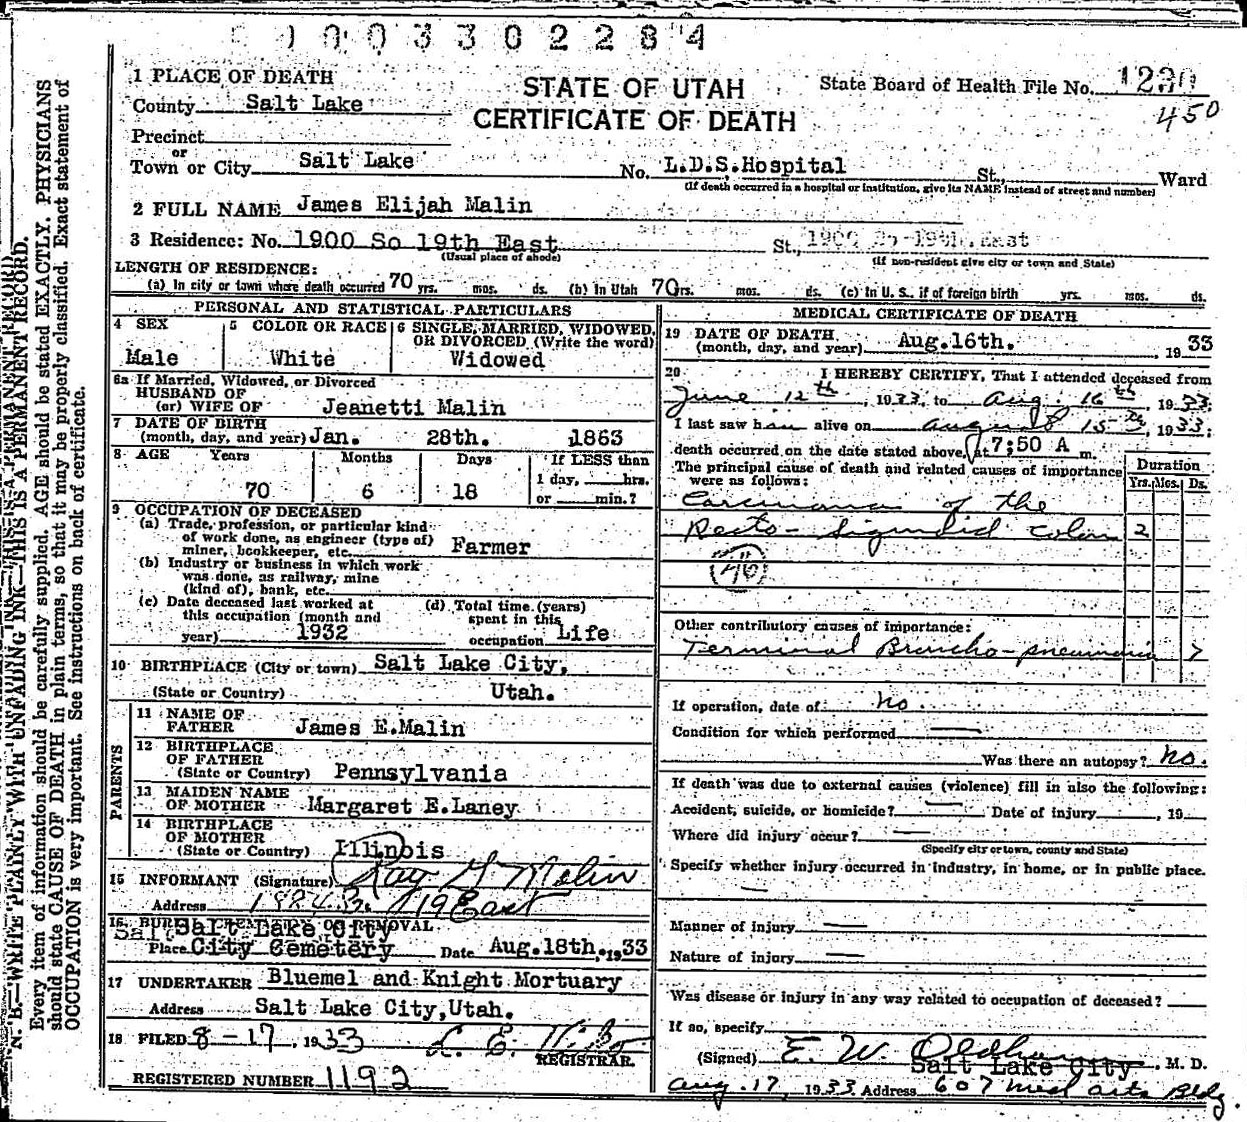 0 0 3 3 0 2 2 8 4
1 PLACE OF DEATH
County Salt Lake
Precinct
or
Town or City Salt Lake
STATE OF UTAH
CERTIFICATE OF DEATH
State Board of Health File No. 1230
450
No. L.D.S. Hospital St., Ward
(If death occurred in a hospital or institution, give its NAME instead of street and number)
2 FULL NAME James Elijah Malin
3 Residence: No. 1900 So 19th East St., 1900 So 19th. East
(Usual place of abode) (If non-resident give city or town and State)
LENGTH OF RESIDENCE:
(a) In city or town where death occurred 70 yrs. mos. ds. (b) In Utah 70rs. mos. ds. (c) In U. S., if of foreign birth yrs. mos. ds.
PERSONAL AND STATISTICAL PARTICULARS
4 SEX
Male
5 COLOR OR RACE
White
6 SINGLE, MARRIED, WIDOWED,
OR DIVORCED (Write the word)
Widowed
6a If Married, Widowed, or Divorced
HUSBAND OF
(or) WIFE OF Jeanetti Malin
7 DATE OF BIRTH
(month, day, and year) Jan. 28th. 1863
8 AGE Years Months Days If LESS than
1 day, hrs.
70 6 18 or min.?
9 OCCUPATION OF DECEASED
(a) Trade, profession, or particular kind
of work done, as engineer (type of)
miner, bookkeeper, etc. Farmer
(b) Industry or business in which work
was done, as railway, mine
(kind of), bank, etc.
(c) Date deceased last worked at
this occupation (month and
year) 1932
(d) Total time (years)
spent in this
occupation Life
10 BIRTHPLACE (City or town) Salt Lake City,
(State or Country) Utah.
PARENTS
11 NAME OF
FATHER James E.Malin
12 BIRTHPLACE
OF FATHER
(State or Country) Pennsylvania
13 MAIDEN NAME
OF MOTHER Margaret E.Laney
14 BIRTHPLACE
OF MOTHER
(State or Country) Illinois
15 INFORMANT (Signature) Ray G Malin
Address 1884 So. 19 East
16 BURIAL, CREMATION OR REMOVAL
Salt Lake City
Place City Cemetery Date Aug.18th, 1933
17 UNDERTAKER Bluemel and Knight Mortuary
Address Salt Lake City,Utah.
18 FILED 8-17, 1933
REGISTRAR
REGISTERED NUMBER 1192
MEDICAL CERTIFICATE OF DEATH
19 DATE OF DEATH
(month, day, and year) Aug.16th. , 1933
20 I HEREBY CERTIFY, That I attended deceased from
June 12th, 1933, to Aug. 16th, 1933;
I last saw him alive on August 15th, 1933;
death occurred on the date stated above, at 7:50 A m.
The principal cause of death and related causes of importance
were as follows:
Duration
Yrs. Mos. Ds.
Carcinoma of the
Recto-Sigmoid colon 2
(46)
Other contributory causes of importance:
Terminal Broncho-pneumonia
If operation, date of no.
Condition for which performed
Was there an autopsy? no.
If death was due to external causes (violence) fill in also the following:
Accident, suicide, or homicide? Date of injury , 19
Where did injury occur?
(Specify city or town, county and State)
Specify whether injury occurred in industry, in home, or in public place.
Manner of injury
Nature of injury
Was disease or injury in any way related to occupation of deceased?
If so, specify
(Signed) E. W. Oldham, M. D.
Salt Lake City
Aug. 17, 1933 Address 607 Med Arts Bldg.
N. B.—WRITE PLAINLY WITH UNFADING INK—THIS IS A PERMANENT RECORD.
Every item of information should be carefully supplied. AGE should be stated EXACTLY. PHYSICIANS
should state CAUSE OF DEATH in plain terms, so that it may be properly classified. Exact statement of
OCCUPATION is very important. See instructions on back of certificate.